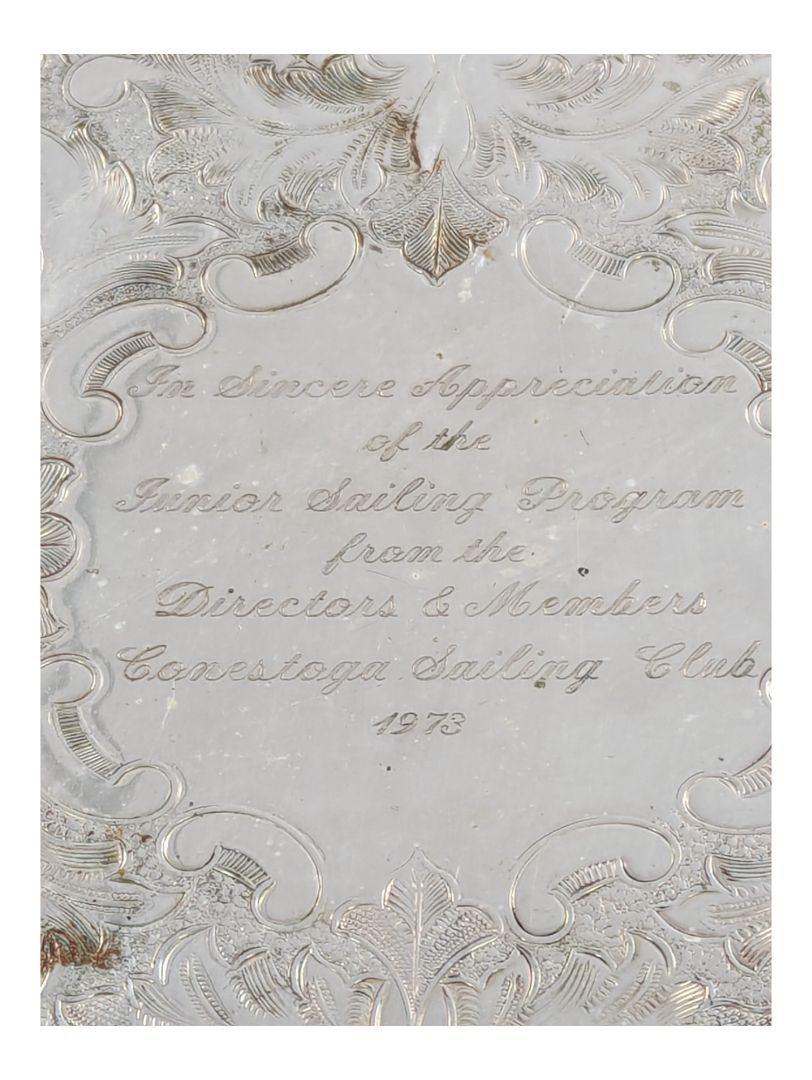 In Sincere Appreciation
of the
Junior Sailing Program
from the
Directors & Members
Conestoga Sailing Club
1973